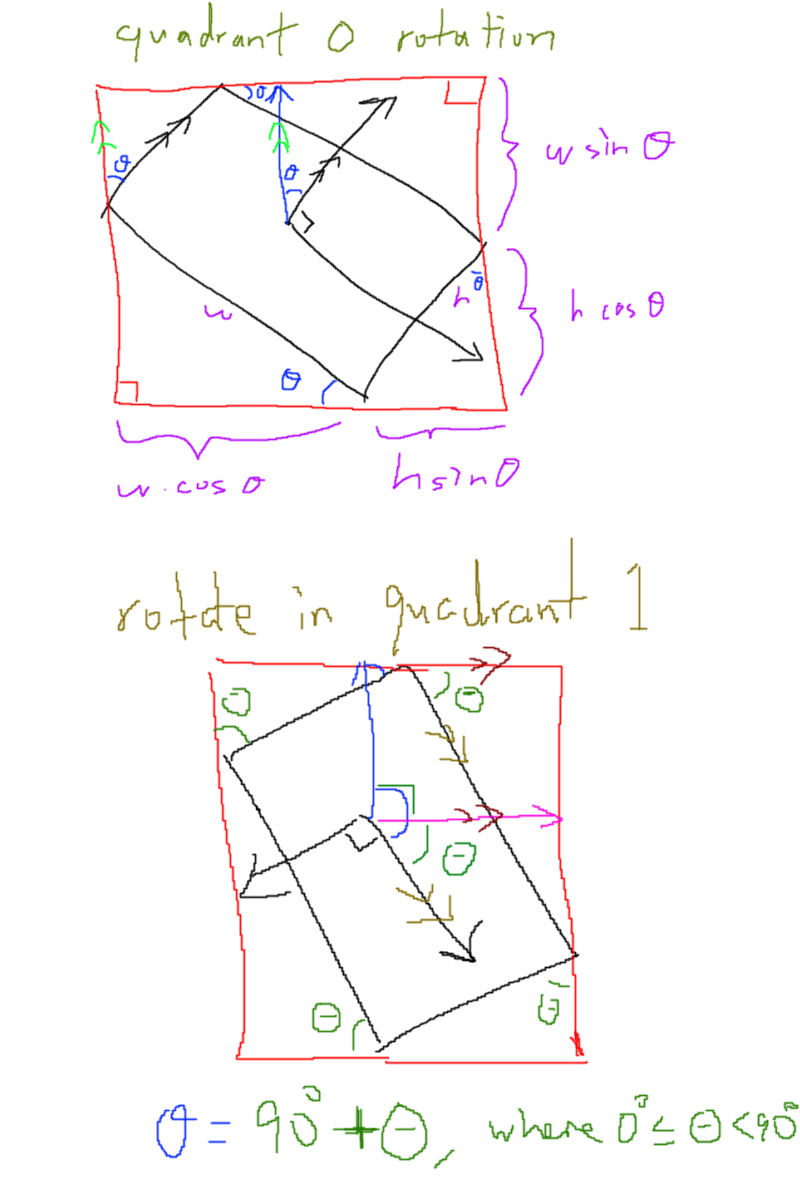 quadrant 0 rotation
θ
θ
θ
w sin θ
θ
w
h
h cos θ
θ
w . cos θ
h sin θ
rotate in quadrant 1
Θ
Θ
Θ
Θ
Θ
θ = 90° + Θ, where 0° ≤ Θ < 90°